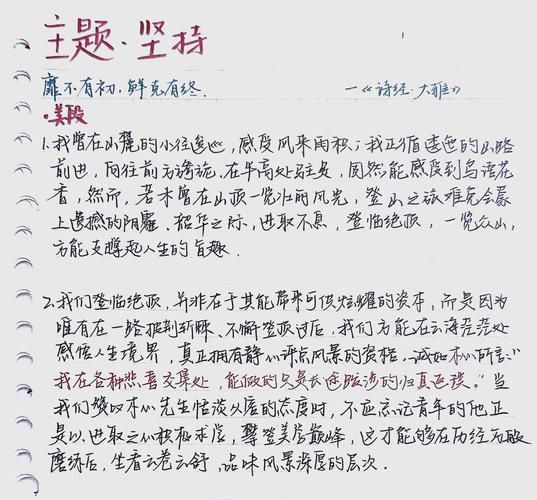 主题·坚持
靡不有初,鲜克有终. —《诗经·大雅》
·美段
1.我曾在山麓的小径逡巡,感受风来雨积;我正循逶迤的山路
前进,向往前方诱旎.在半高处驻足,固然能感受到鸟语花
香,然而,若未曾在山顶一览壮丽风光,登山之旅难免会蒙
上遗憾的阴霾.韶华之际,进取不息,登临绝顶,一览众山,
方能支撑起人生的旨趣.
2.我们登临绝顶,并非在于其能带来可供炫耀的资本,而是因为
唯有在一路披荆斩棘、不懈登顶过后,我们方能在云海茫茫处
感悟人生境界,真正拥有静心评点风景的资格.诚如木心所言:“
我在各种悲喜交集处,能做的只是长途跋涉的归真返璞.”当
我们赞叹木心先生恬淡久度的态度时,不应忘记青年的他正
是以进取之心积极求学,攀登美学巅峰,这才能够在历经万般
磨练后,坐看云卷云舒,品味风景深厚的层次.